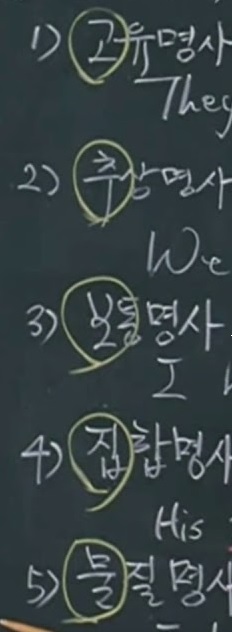 1) 고유명사
They
2) 추상명사
We
3) 보통명사
I
4) 집합명사
His
5) 물질명사